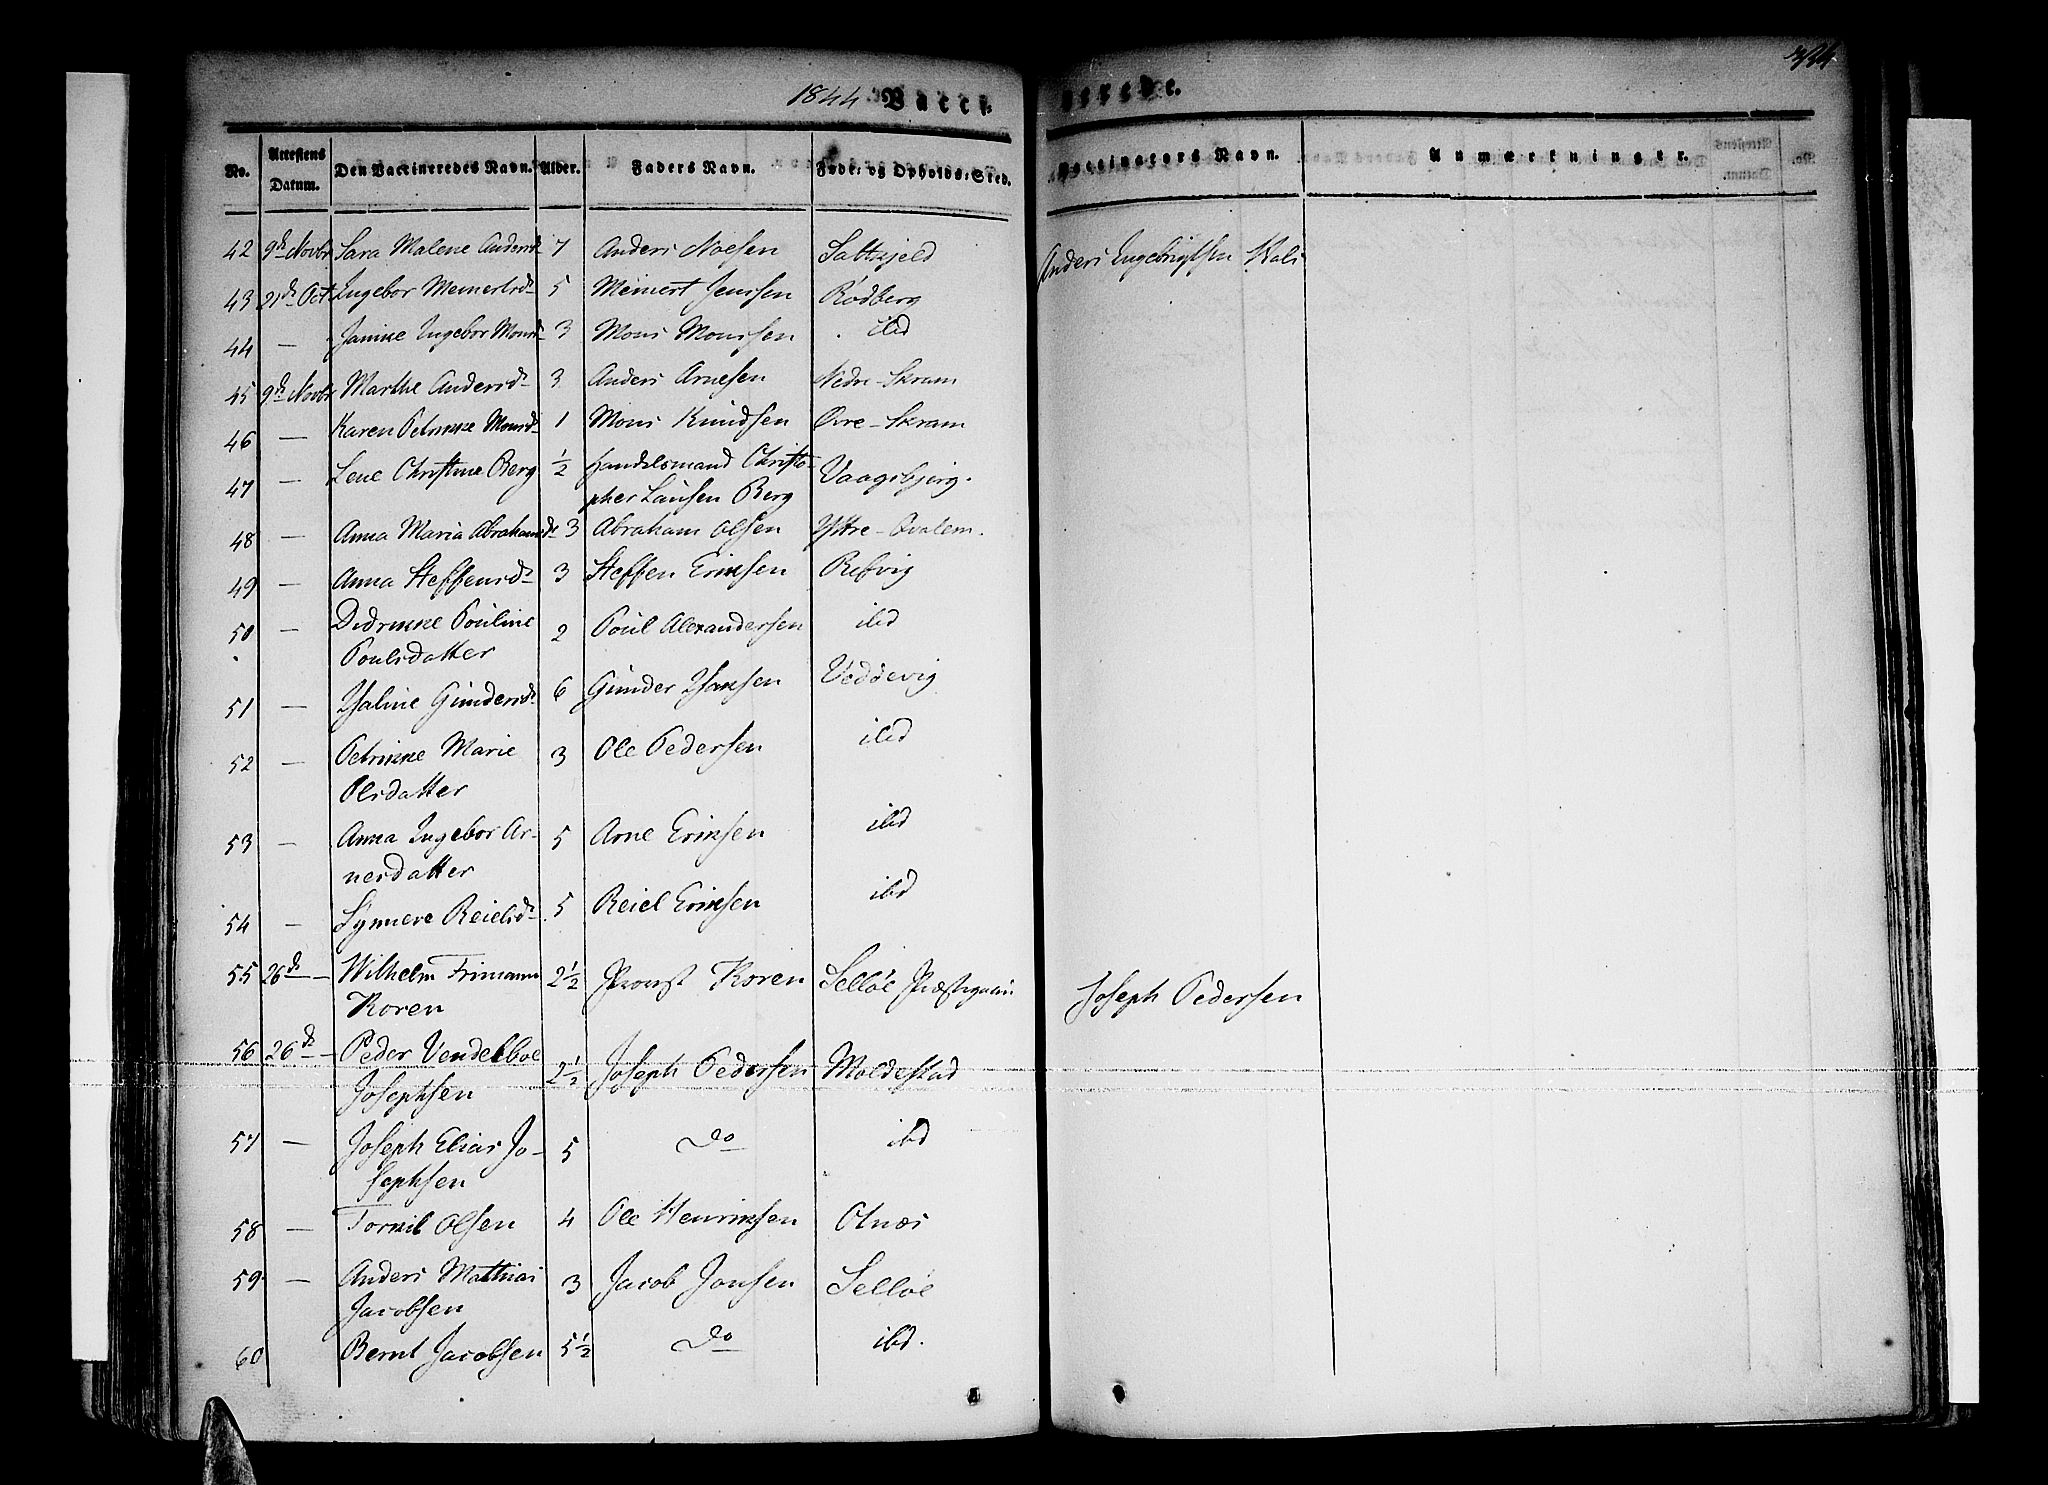 1844 Vacci-
nerede.
No. Attestens Datum. Den Vaccineredes Navn. Alder. Faders Navn. Føde- og Opholds-Sted.
Vaccinators Navn. Anmærkninger.
42 9de Novbr Sara Malene Andersdr 7 Anders Noesen Saltkjeld Anders Engebrigtsen
43 21de Oct Ingebor Meinertsdr 5 Meinert Jenssen Rødberg
44 — Janike Ingebor Monsdr 3 Mons Monssen ibd
45 9de Novbr Marthe Andersdr 3 Anders Arnesen Nedre-Skram
46 — Karen Petrikke Monsdr 1 Mons Knudsen Øvre-Skram
47 — Lene Christine Berg ½ Handelsmand Christo-
pher Lausen Berg Vaagsbjerg.
48 — Anna Maria Abrahamsdr 3 Abraham Olsen Yttre-Qvalem.
49 — Anna Steffensdr 3 Steffen Eriksen Refvig
50 — Didrikke Pouline 2 Poul Alexandersen ibd
Poulsdatter
51 — Hsaline Gundersdr 6 Gunder Hansen Vedöevig
52 — Petrikke Marie 3 Ole Pedersen ibd
Olsdatter
53 — Anna Ingebor Ar- 5 Arne Eriksen ibd
nesdatter
54 — Synneve Reielsdr 5 Reiel Eriksen ibd
55 26de — Wilhelm Frimann 2½ Provst Koren Selløe Præstegaar Joseph Pedersen
Koren
56 26de — Peder Vendelboe 2½ Joseph Pedersen Moldestad
Josephsen
57 — Joseph Elias Jo- 5 Do ibd
sephsen
58 — Tornil Olsen 4 Ole Henriksen Otnæs
59 — Anders Mathias 3 Jacob Jonsen Selløe
Jacobsen
60 Bernt Jacobsen 5½ Do ibd.